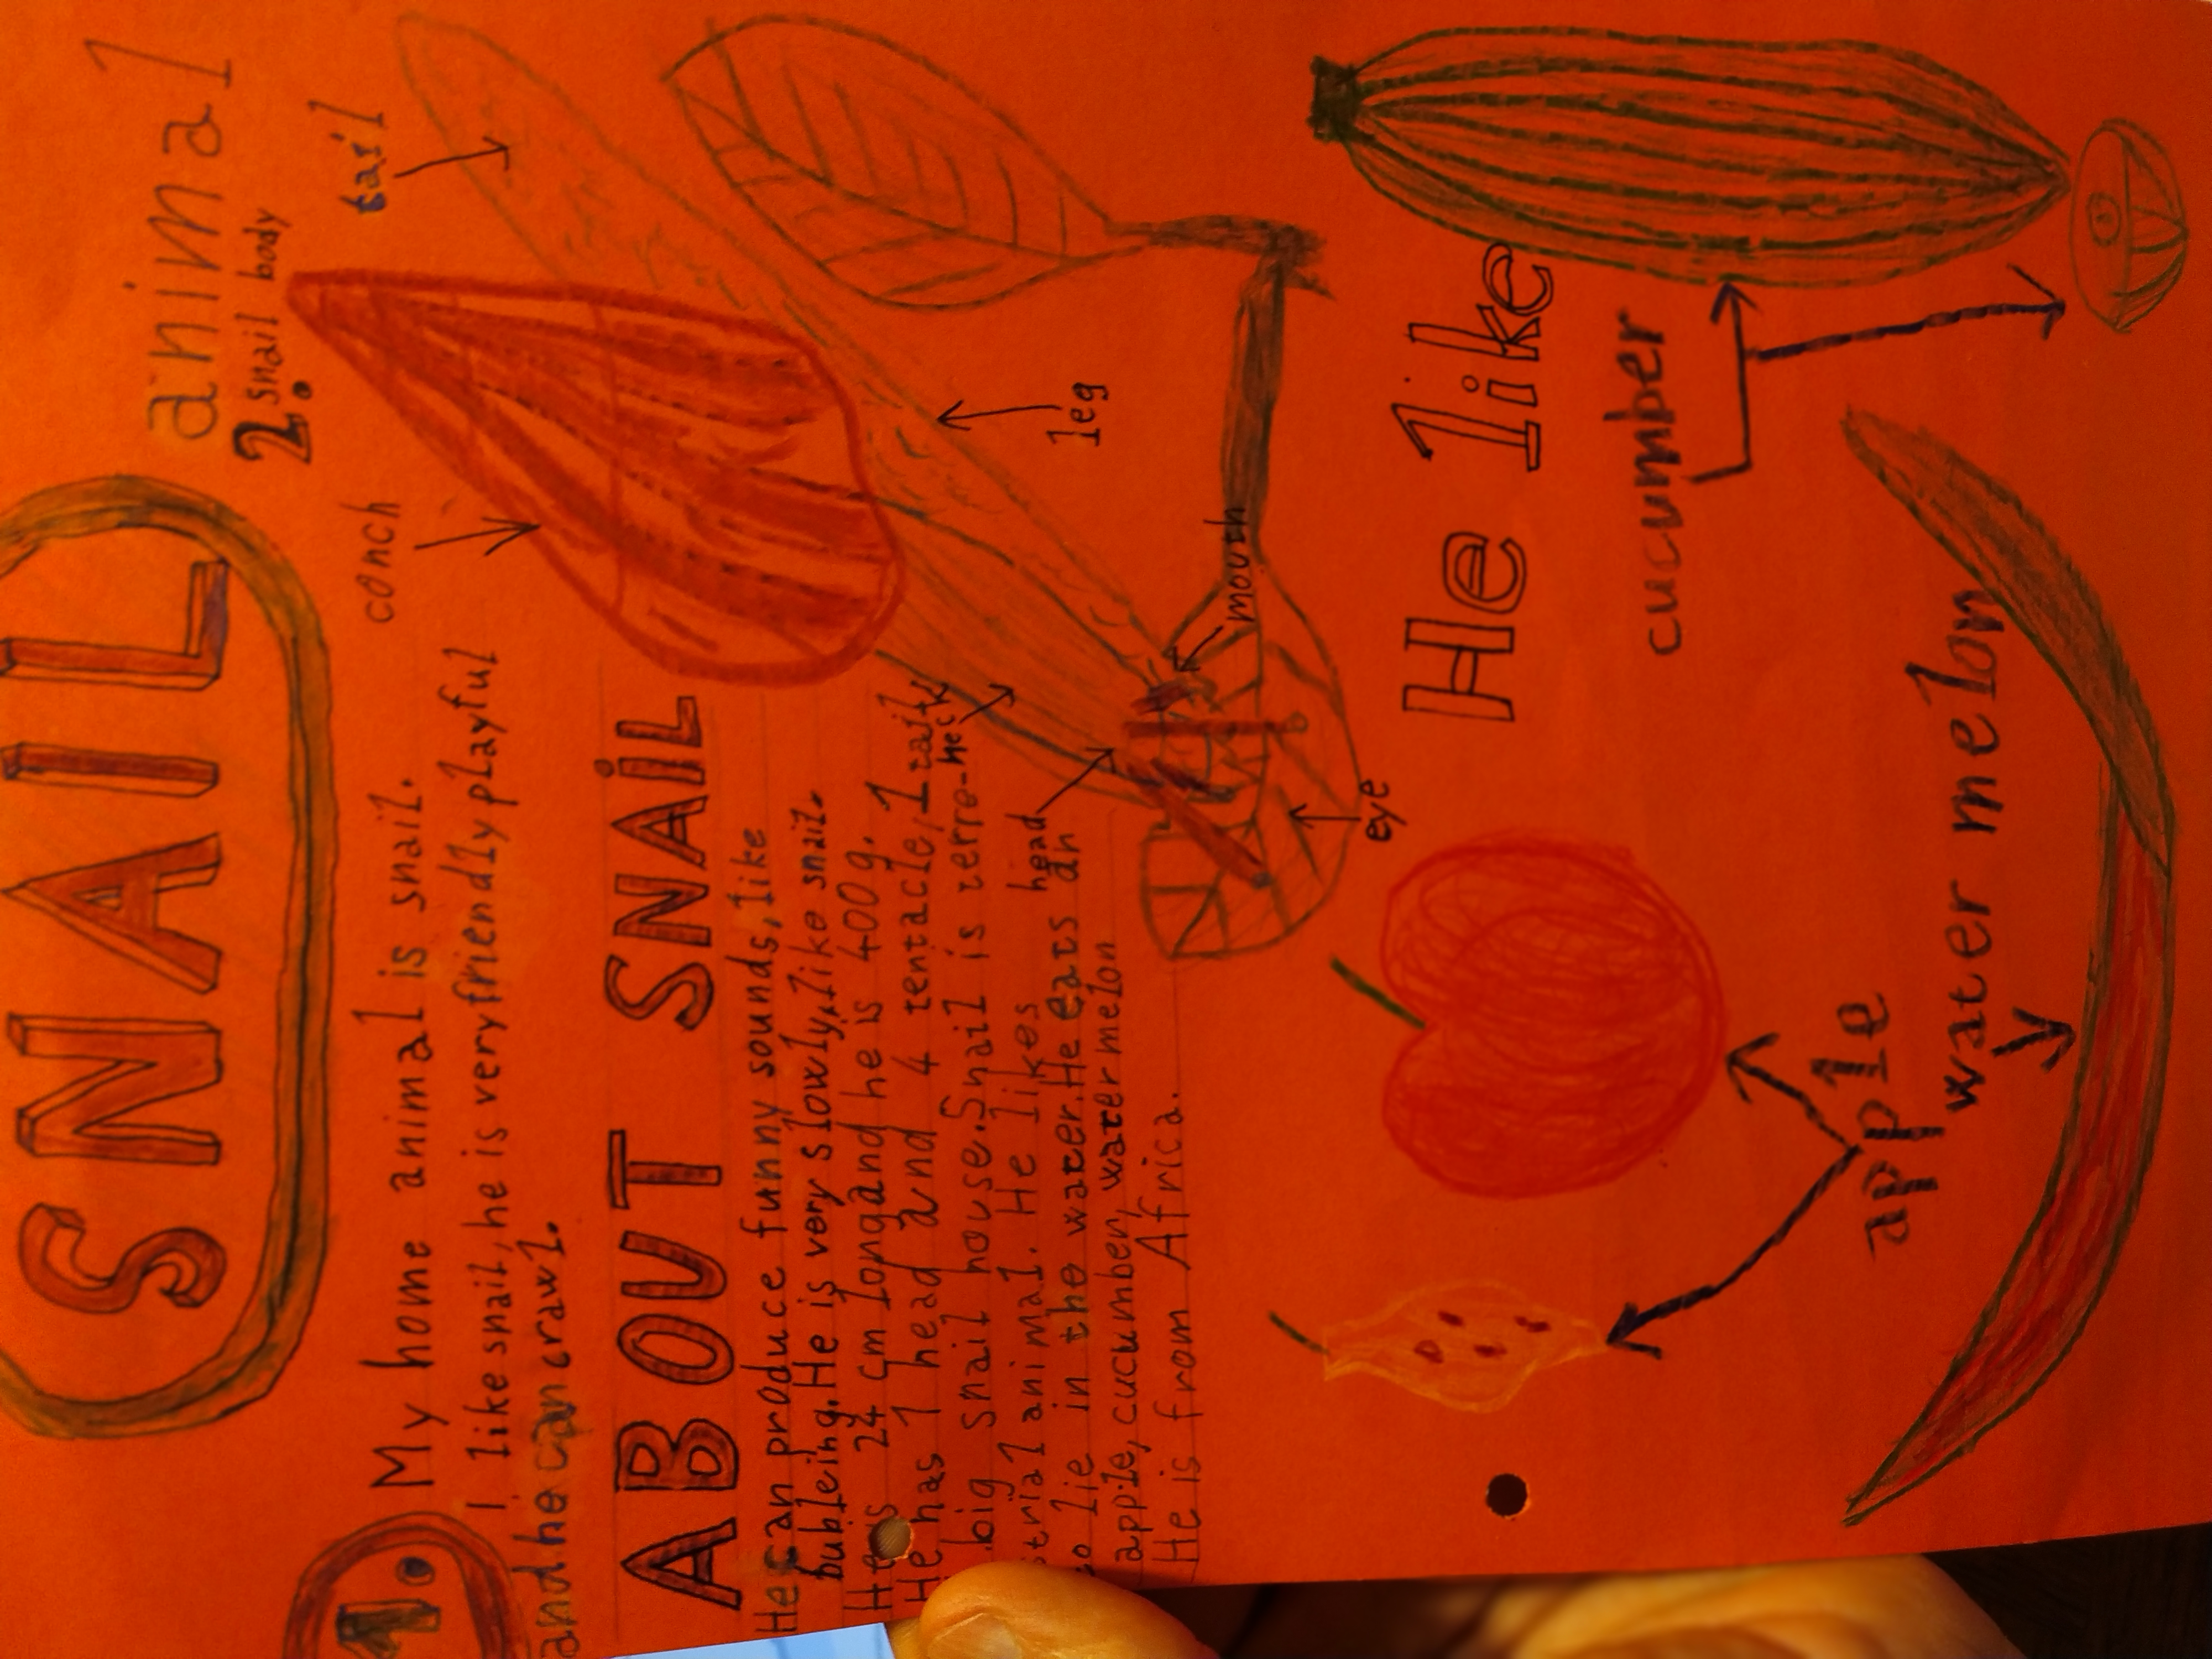 SNAIL
animal
1.
My home animal is snail.
I like snail, he is very friendly playful
and he can crawl.
ABOUT SNAIL
He can produce funny sounds, like
bubleing. He is very slowly, like snail.
He is 24 cm long and he is 400 g.
He has 1 head and 4 tentacle, 1 tail,
big snail house. Snail is terre-
strial animal. He likes
to lie in the water. He eats an
apple, cucumber, water melon
He is from Africa.
2. snail body
tail
conch
leg
neck
mouth
head
eye
He like
cucumber
apple
water melon